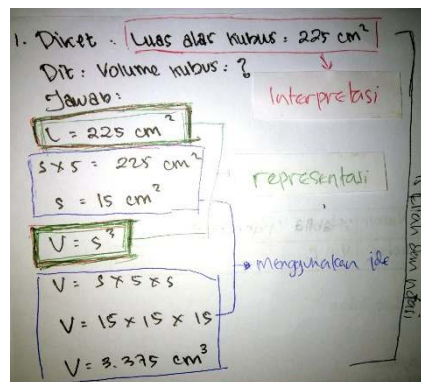 1. Diket : Luas alas kubus : 225 cm²
Dit : Volume kubus : ?
Jawab :
Interpretasi
L = 225 cm²
s x s = 225 cm²
s = 15 cm²
representasi
V = s³
menggunakan ide
V = s x s x s
V = 15 x 15 x 15
V = 3.375 cm³
istilah dan notasi